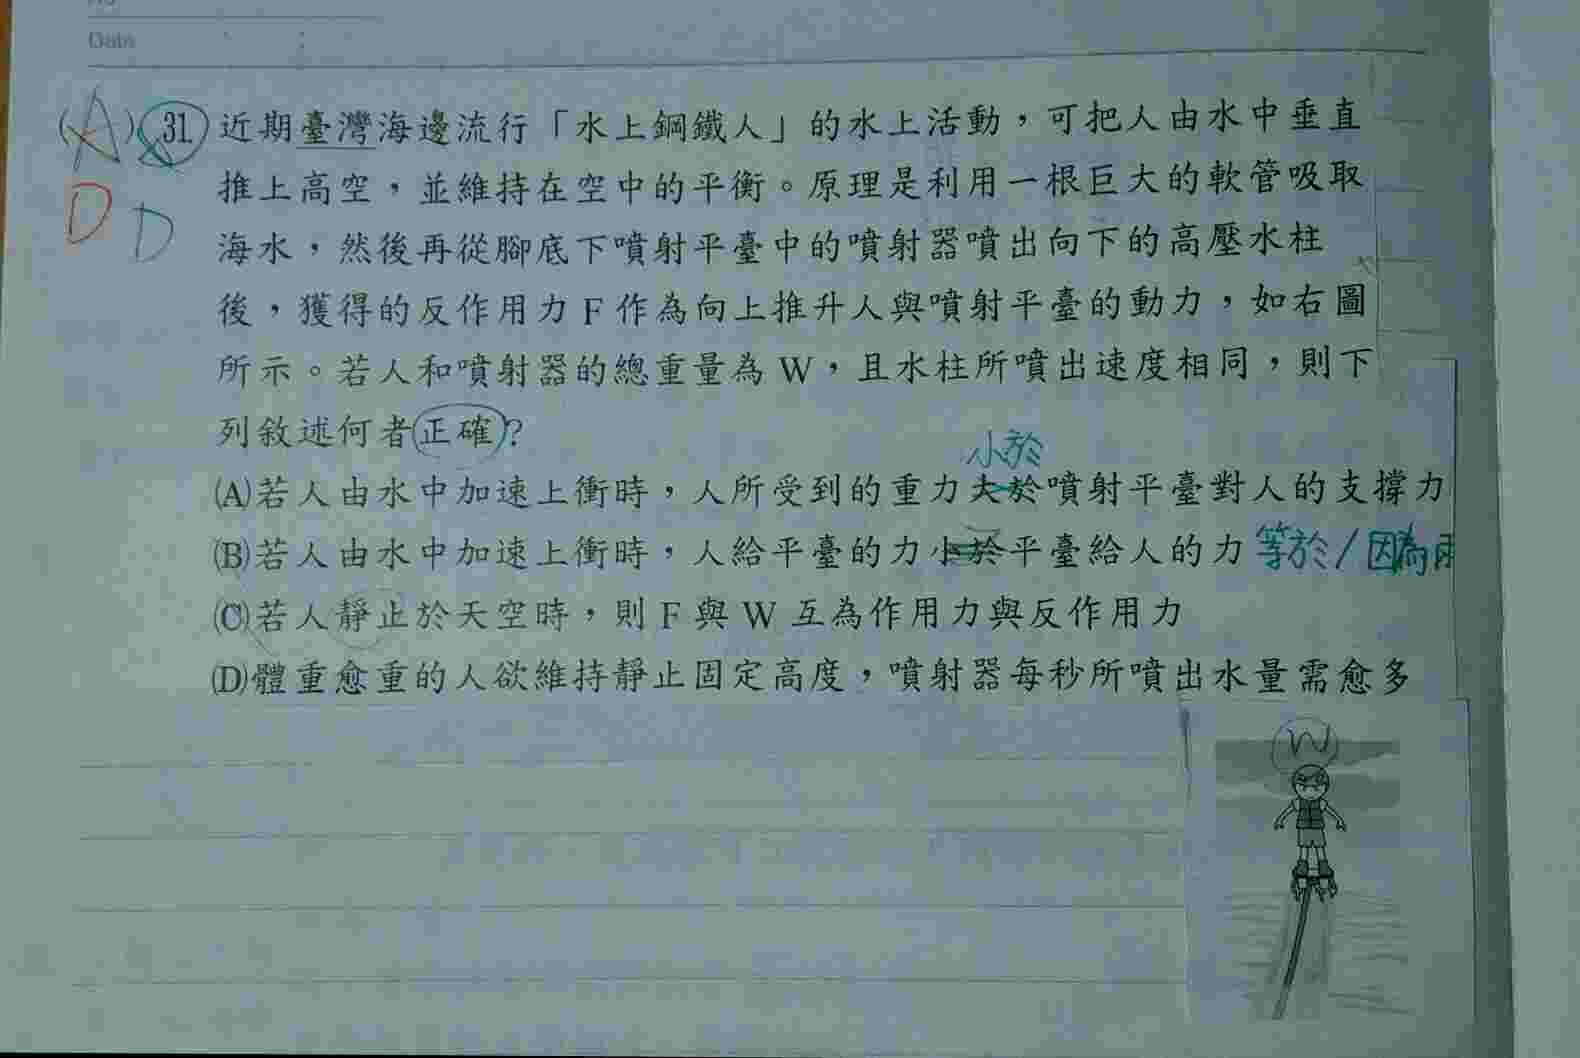 Date
(A) 31. 近期臺灣海邊流行「水上鋼鐵人」的水上活動，可把人由水中垂直
D D
推上高空，並維持在空中的平衡。原理是利用一根巨大的軟管吸取
海水，然後再從腳底下噴射平臺中的噴射器噴出向下的高壓水柱
後，獲得的反作用力 F 作為向上推升人與噴射平臺的動力，如右圖
所示。若人和噴射器的總重量為 W，且水柱所噴出速度相同，則下
列敘述何者正確？
小於
(A)若人由水中加速上衝時，人所受到的重力大於噴射平臺對人的支撐力
(B)若人由水中加速上衝時，人給平臺的力小於平臺給人的力 等於/因為
(C)若人靜止於天空時，則 F 與 W 互為作用力與反作用力
(D)體重愈重的人欲維持靜止固定高度，噴射器每秒所噴出水量需愈多
W